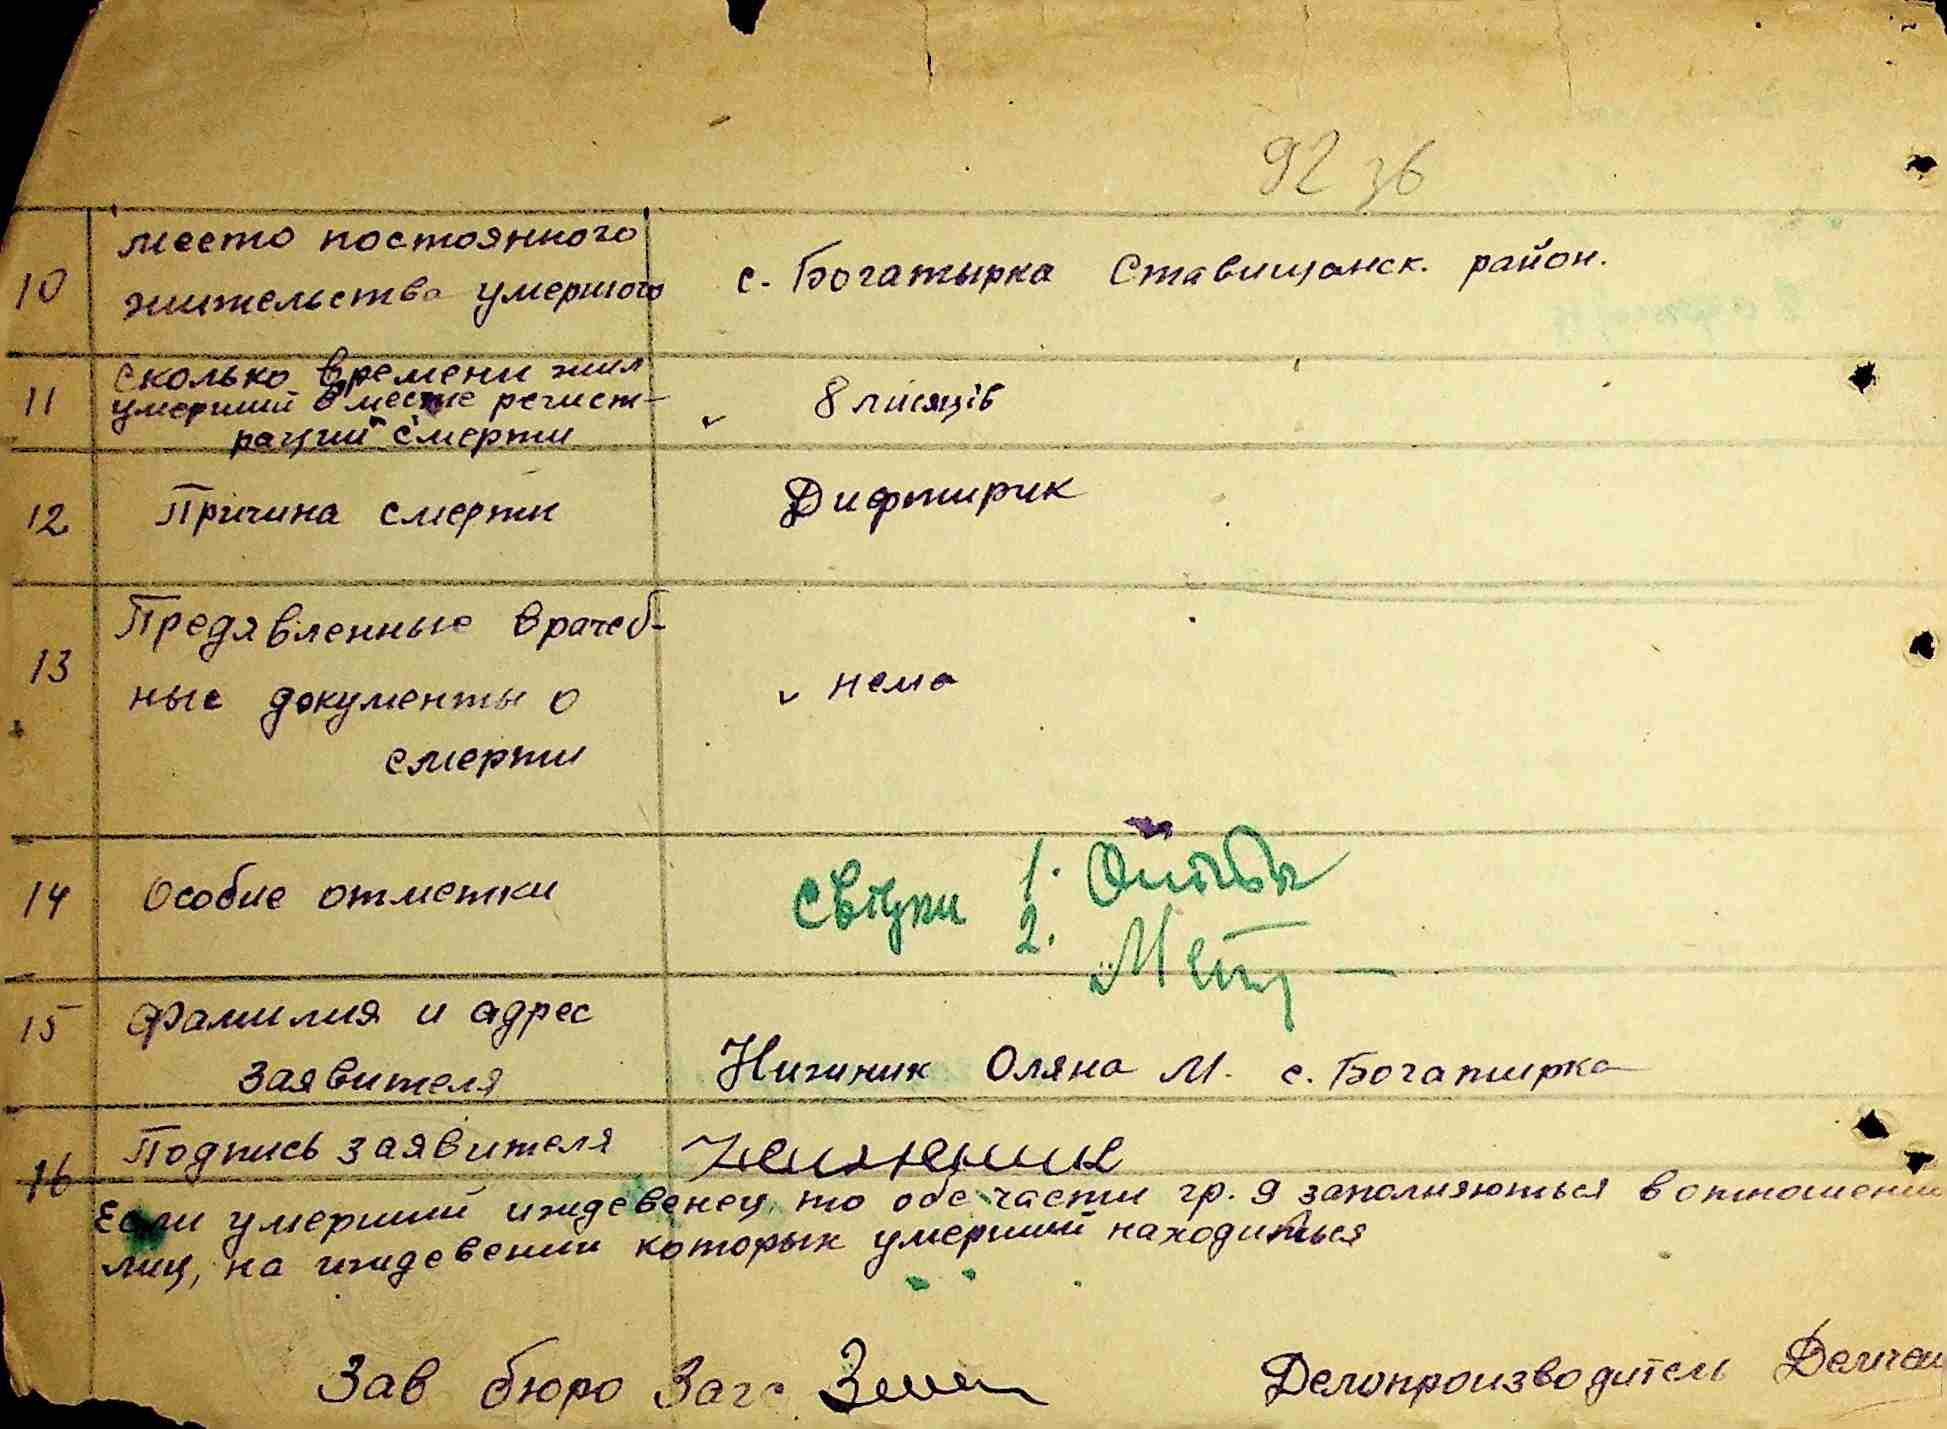 92 зв
10 место постоянного
жительства умершого с. Богатырка Ставищанск. район.
11 сколько времени жил
умерший в месте регист-
рации смерти 8 місяців
12 Прічина смерти Дифтирик
13 Предявленные врачеб-
ные документы о нема
смерти
14 Особие отметки свідки 1.
2.
15 Фамилия и адрес
заявителя Нижник Оляна М. с. Богатирка
16 Подпись заявителя
Если умерший иждевенец, то обе части гр. 9 заполняються в отношении
лиц, на иждевении которых умерший находиться
Зав бюро Загс Делопроизводитель